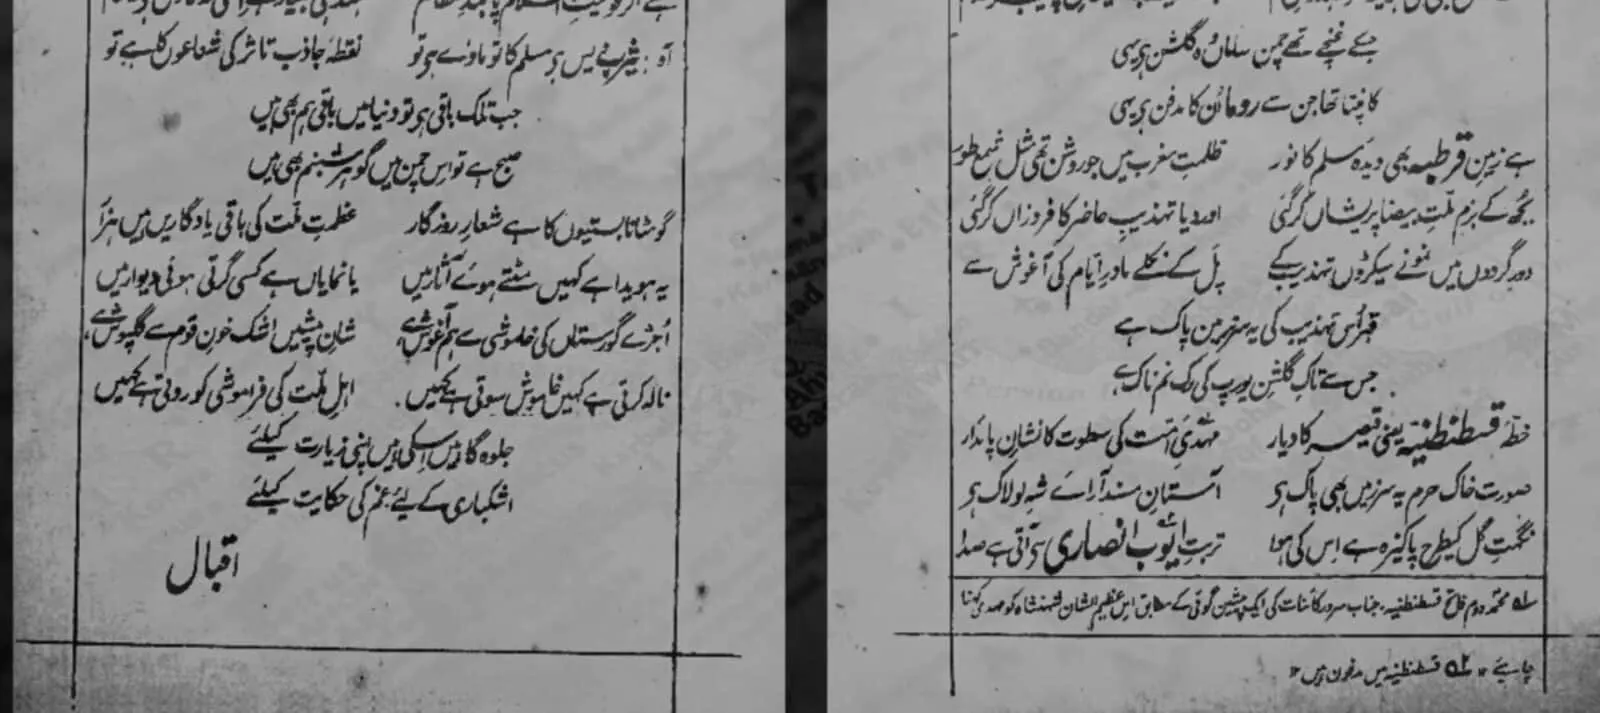 جسکے غنچے تھے چمن ساماں وہ گلشن ہی یہی
کانپتا تھا جن سے روما اُن کا مدفن ہی یہی
ہے زمینِ قرطبہ بھی دیدہ مسلم کا نور ظلمتِ مغرب میں جو روشن تھی مثل شمع طور
بجھ کے بزمِ ملتِ بیضا پریشاں کر گئی اور دیا تہذیبِ حاضر کا فروزاں کر گئی
دور گردوں میں نمونے سیکڑوں تہذیب کے پَل کے نکلے مادرِ ایّام کی آغوش سے
قبر اُس تہذیب کی یہ سرزمین پاک ہے
جس سے تاکِ گلشن یورپ کی رگ نم ناک ہے
خطۂ قسطنطنیہ یعنی قیصر کا دیار مہدیِ امت کی سطوت کا نشانِ پائدار
صورت خاک حرم یہ سرزمیں بھی پاک ہی آستانِ مسند آرائے شہِ لولاک ہی
نکہتِ گل کیطرح پاکیزہ ہے اِس کی ہوا تربتِ ایّوب انصاری سی آتی ہے صدا
لہ محمد دوم فاتح قسطنطنیہ۔ جناب سرور کائنات کی ایک پیشین گوئی کے مطابق اس عظیم الشان شہنشاہ کو مہدی کہنا
چاہیئے ۱۲ لہ قسطنطنیہ میں مدفون ہیں ۱۲
آہ! یثرب دیس ہی مسلم کا تو ماوےٰ ہی تو نقطۂ جاذب تاثر کی شعاعوں کا ہے تو
جب تلک باقی ہی تو دنیا میں باقی ہم بھی ہیں
صبح ہے تو اس چمن میں گوہر شبنم بھی ہیں
گو مٹانا بستیوں کا ہے شعارِ روزگار عظمتِ ملّت کی باقی یادگاریں ہیں ہزار
یہ ہویدا ہے کہیں مٹتے ہوئے آثار میں یا نمایاں ہے کسی گرتی ہوئی دیوار میں
اُجڑے گورستاں کی خاموشی سے ہم آغوش ہے شانِ پیشیں اشک خونِ قوم سے گلپوش ہے
نالہ کرتی ہے کہیں خاموش سوتی ہے کہیں۔ اہلِ ملّت کی فراموشی کو روتی ہے کہیں
جلوہ گاہیں اسکی ہیں اپنی زیارت کیلئے
اشکباری کے لیئے غم کی حکایت کیلئے
اقبال